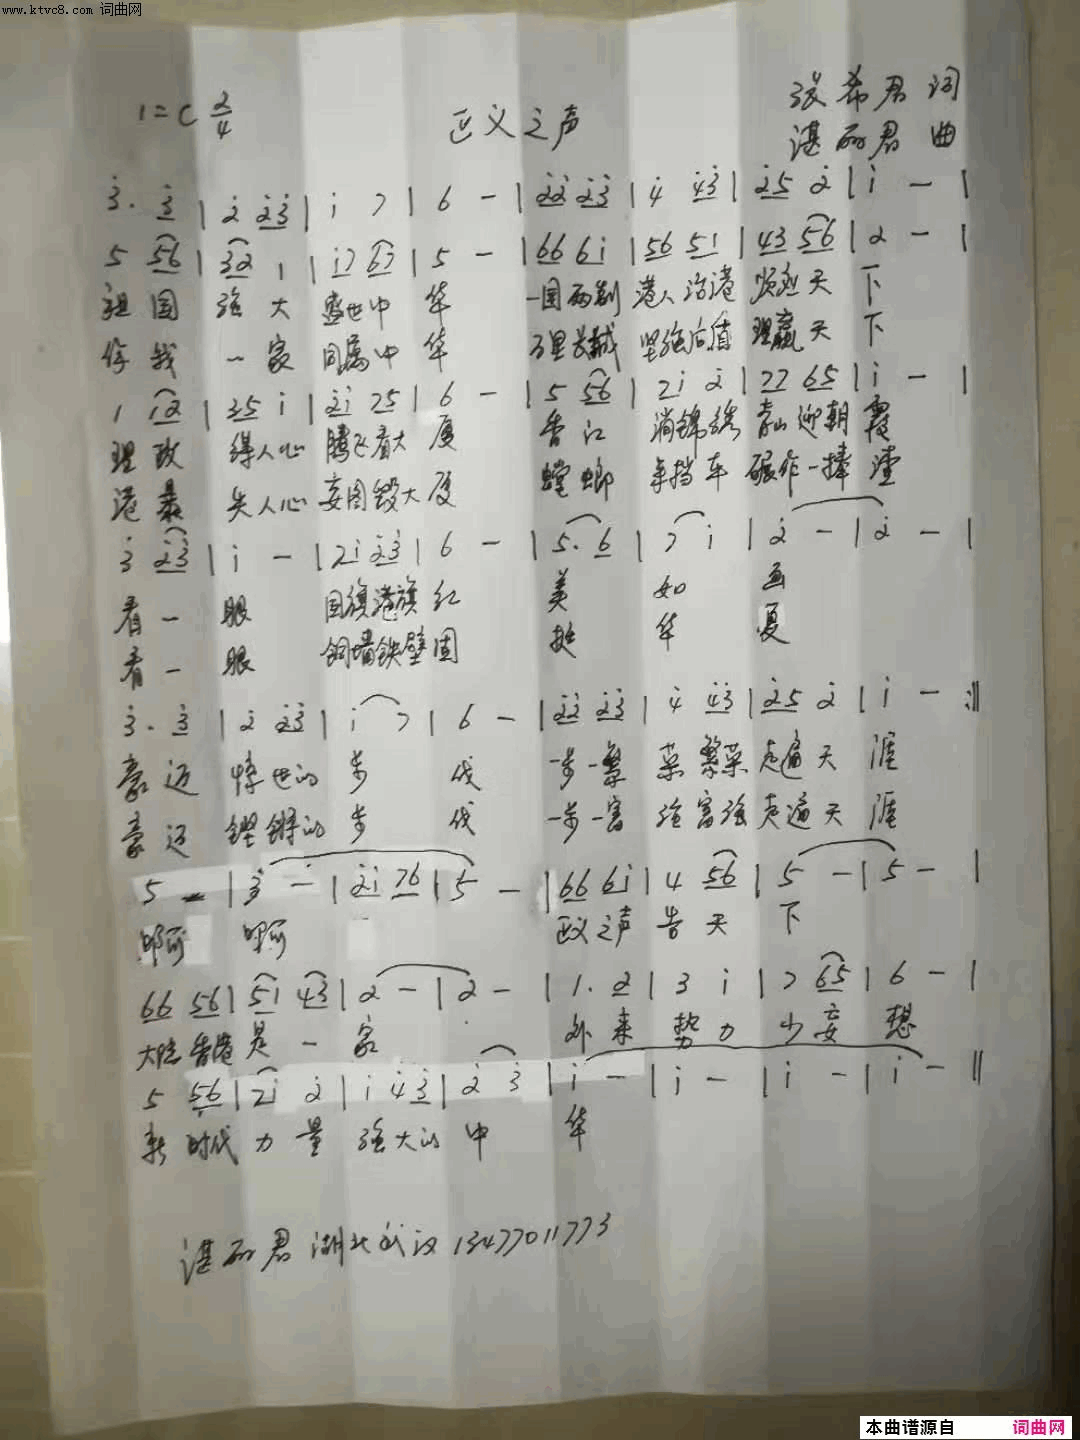 www.ktvc8.com 词曲网
1=C 2/4 正义之声 张希君 词
湛丽君 曲
3̇. 3̇ | 2̇ 2̇3̇ | i 7 | 6 - | 2̇2̇ 2̇3̇ | 4̇ 4̇3̇ | 2̇5 2̇ | i - |
5 56 | 32 1 | i7 67 | 5 - | 66 6i | 56 51 | 43 56 | 2 - |
祖国 强大 盛世中华 一国两制 港人治港 天下
你我 一家 同属中华 万里长城 坚强后盾 理赢天下
1 12 | 35 i | 2̇i 75 | 6 - | 5 56 | 7i 2̇ | 77 65 | i - |
理政 得人心 腾飞看大厦 香江 淌锦绣 青山迎朝霞
港暴 失人心 妄图毁大厦 螳螂 挡车 碾作一捧渣
3̇ 2̇3̇ | i - | 7i 2̇3̇ | 6 - | 5. 6 | 7 i | 2̇ - | 2̇ - |
看一眼 国旗港旗红 美如画
看一眼 铜墙铁壁固 挺华夏
3̇. 3̇ | 2̇ 2̇3̇ | i 7 | 6 - | 2̇2̇ 2̇3̇ | 4̇ 4̇3̇ | 2̇5 2̇ | i - :||
豪迈 世的步伐 一步一繁荣 繁荣走遍天涯
豪迈 铿锵的步伐 一步一富强 富强走遍天涯
5 - | 3̇ - | 2̇i 76 | 5 - | 66 6i | 4 56 | 5 - | 5 - |
啊 啊 正义之声告天下
66 56 | 51 43 | 2 - | 2 - | 1. 2 | 3 i | 7 65 | 6 - |
大陆香港是一家 外来势力少妄想
5 56 | 7i 2̇ | i 4̇3̇ | 2̇ 3̇ | i - | i - | i - | i - ||
新时代力量 强大的中华
湛丽君 湖北武汉 13477011773
本曲谱源自 词曲网